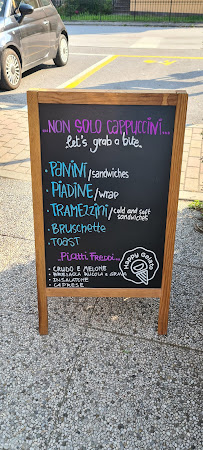 ...NON SOLO CAPPUCCINI...
let's grab a bite...
• PANINI/sandwiches
• PIADINE/wrap
• TRAMEZZINI/cold and soft sandwiches
• BRUSCHETTE
• TOAST
..Piatti Freddi...
• CRUDO E MELONE
• BRESAOLA RUCOLA e GRANA
• INSALATONE
• CAPRESE
Happy Gelato